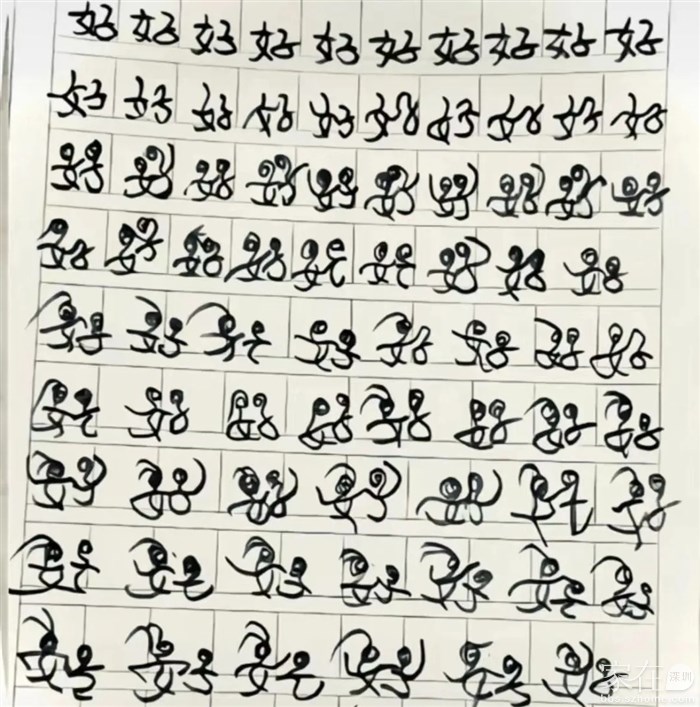 好好好好好好好好好好
好好好好好好好好好好
好好好好好好好好好好
好好好好好好好好好
好好好好好好好好
好好好好好好好好
好好好好好好好
好好好好好好好
好好好好好好
家在深圳